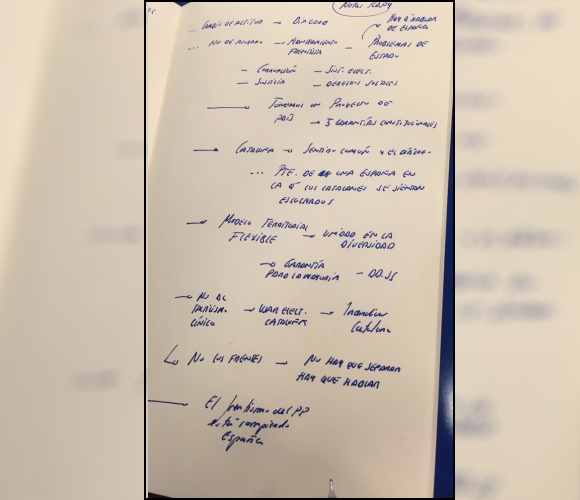 Cambio de actitud → Diálogo
Hay q hablar
de España
... No de acuerdo → Mantenimiento
frentista – Problemas de
Estado
– Corrupción – Sist. elect.
– Justicia – Derechos sociales
→ Tenemos un Proyecto de
país → 3 garantías constitucionales
→ Cataluña → Sentido común y el diálogo
... Pte. de una España en
la q' los catalanes se sientan
escuchados
→ Modelo Territorial
Flexible → Unidad en la
diversidad
→ Garantía
para la mayoría – DD.SS
→ No al
cínico
Cataluña
Catalana
No los frentes → No hay que separar
Hay que hablar
El frentismo del PP
está rompiendo
España